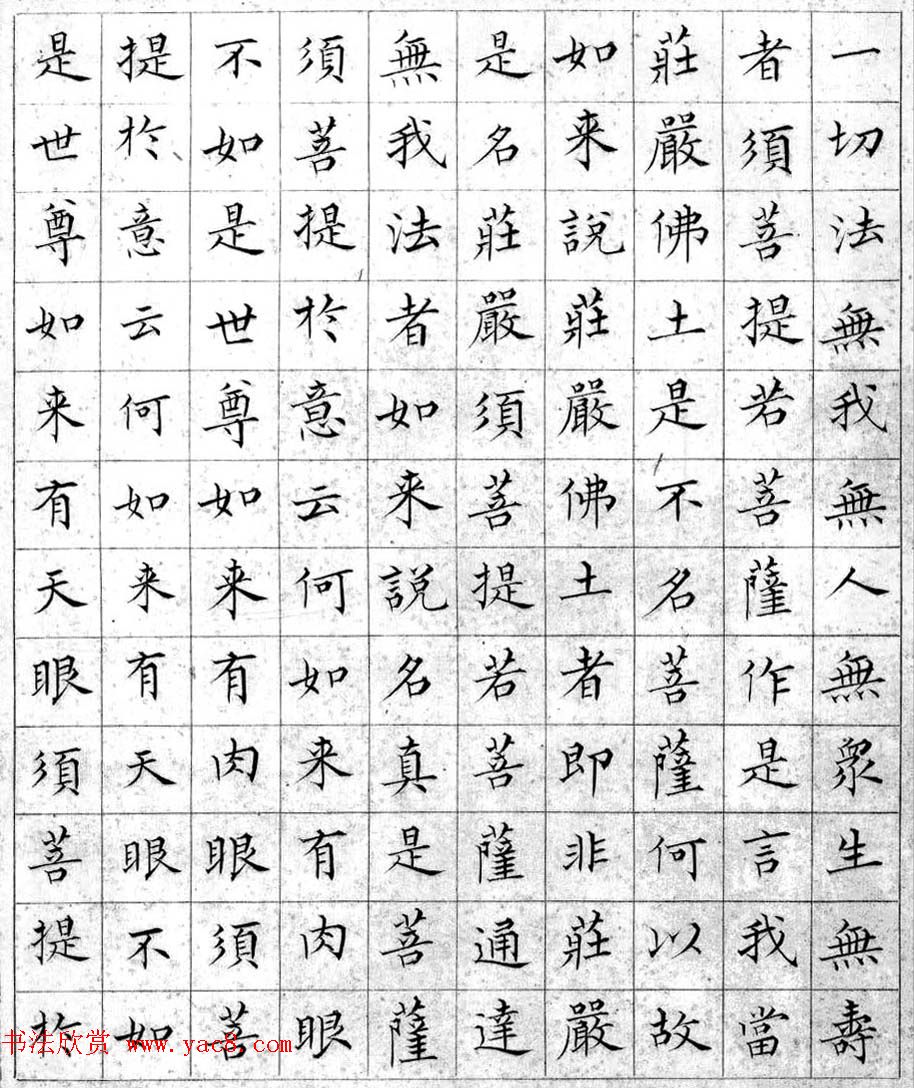 一切法無我無人無衆生無壽
者須菩提若菩薩作是言我當
莊嚴佛土是不名菩薩何以故
如来說莊嚴佛土者即非莊嚴
是名莊嚴須菩提若菩薩通達
無我法者如来說名真是菩薩
須菩提於意云何如来有肉眼
不如是世尊如来有肉眼須菩
提於意云何如来有天眼不如
是世尊如来有天眼須菩提於
书法欣赏 www.yac8.com